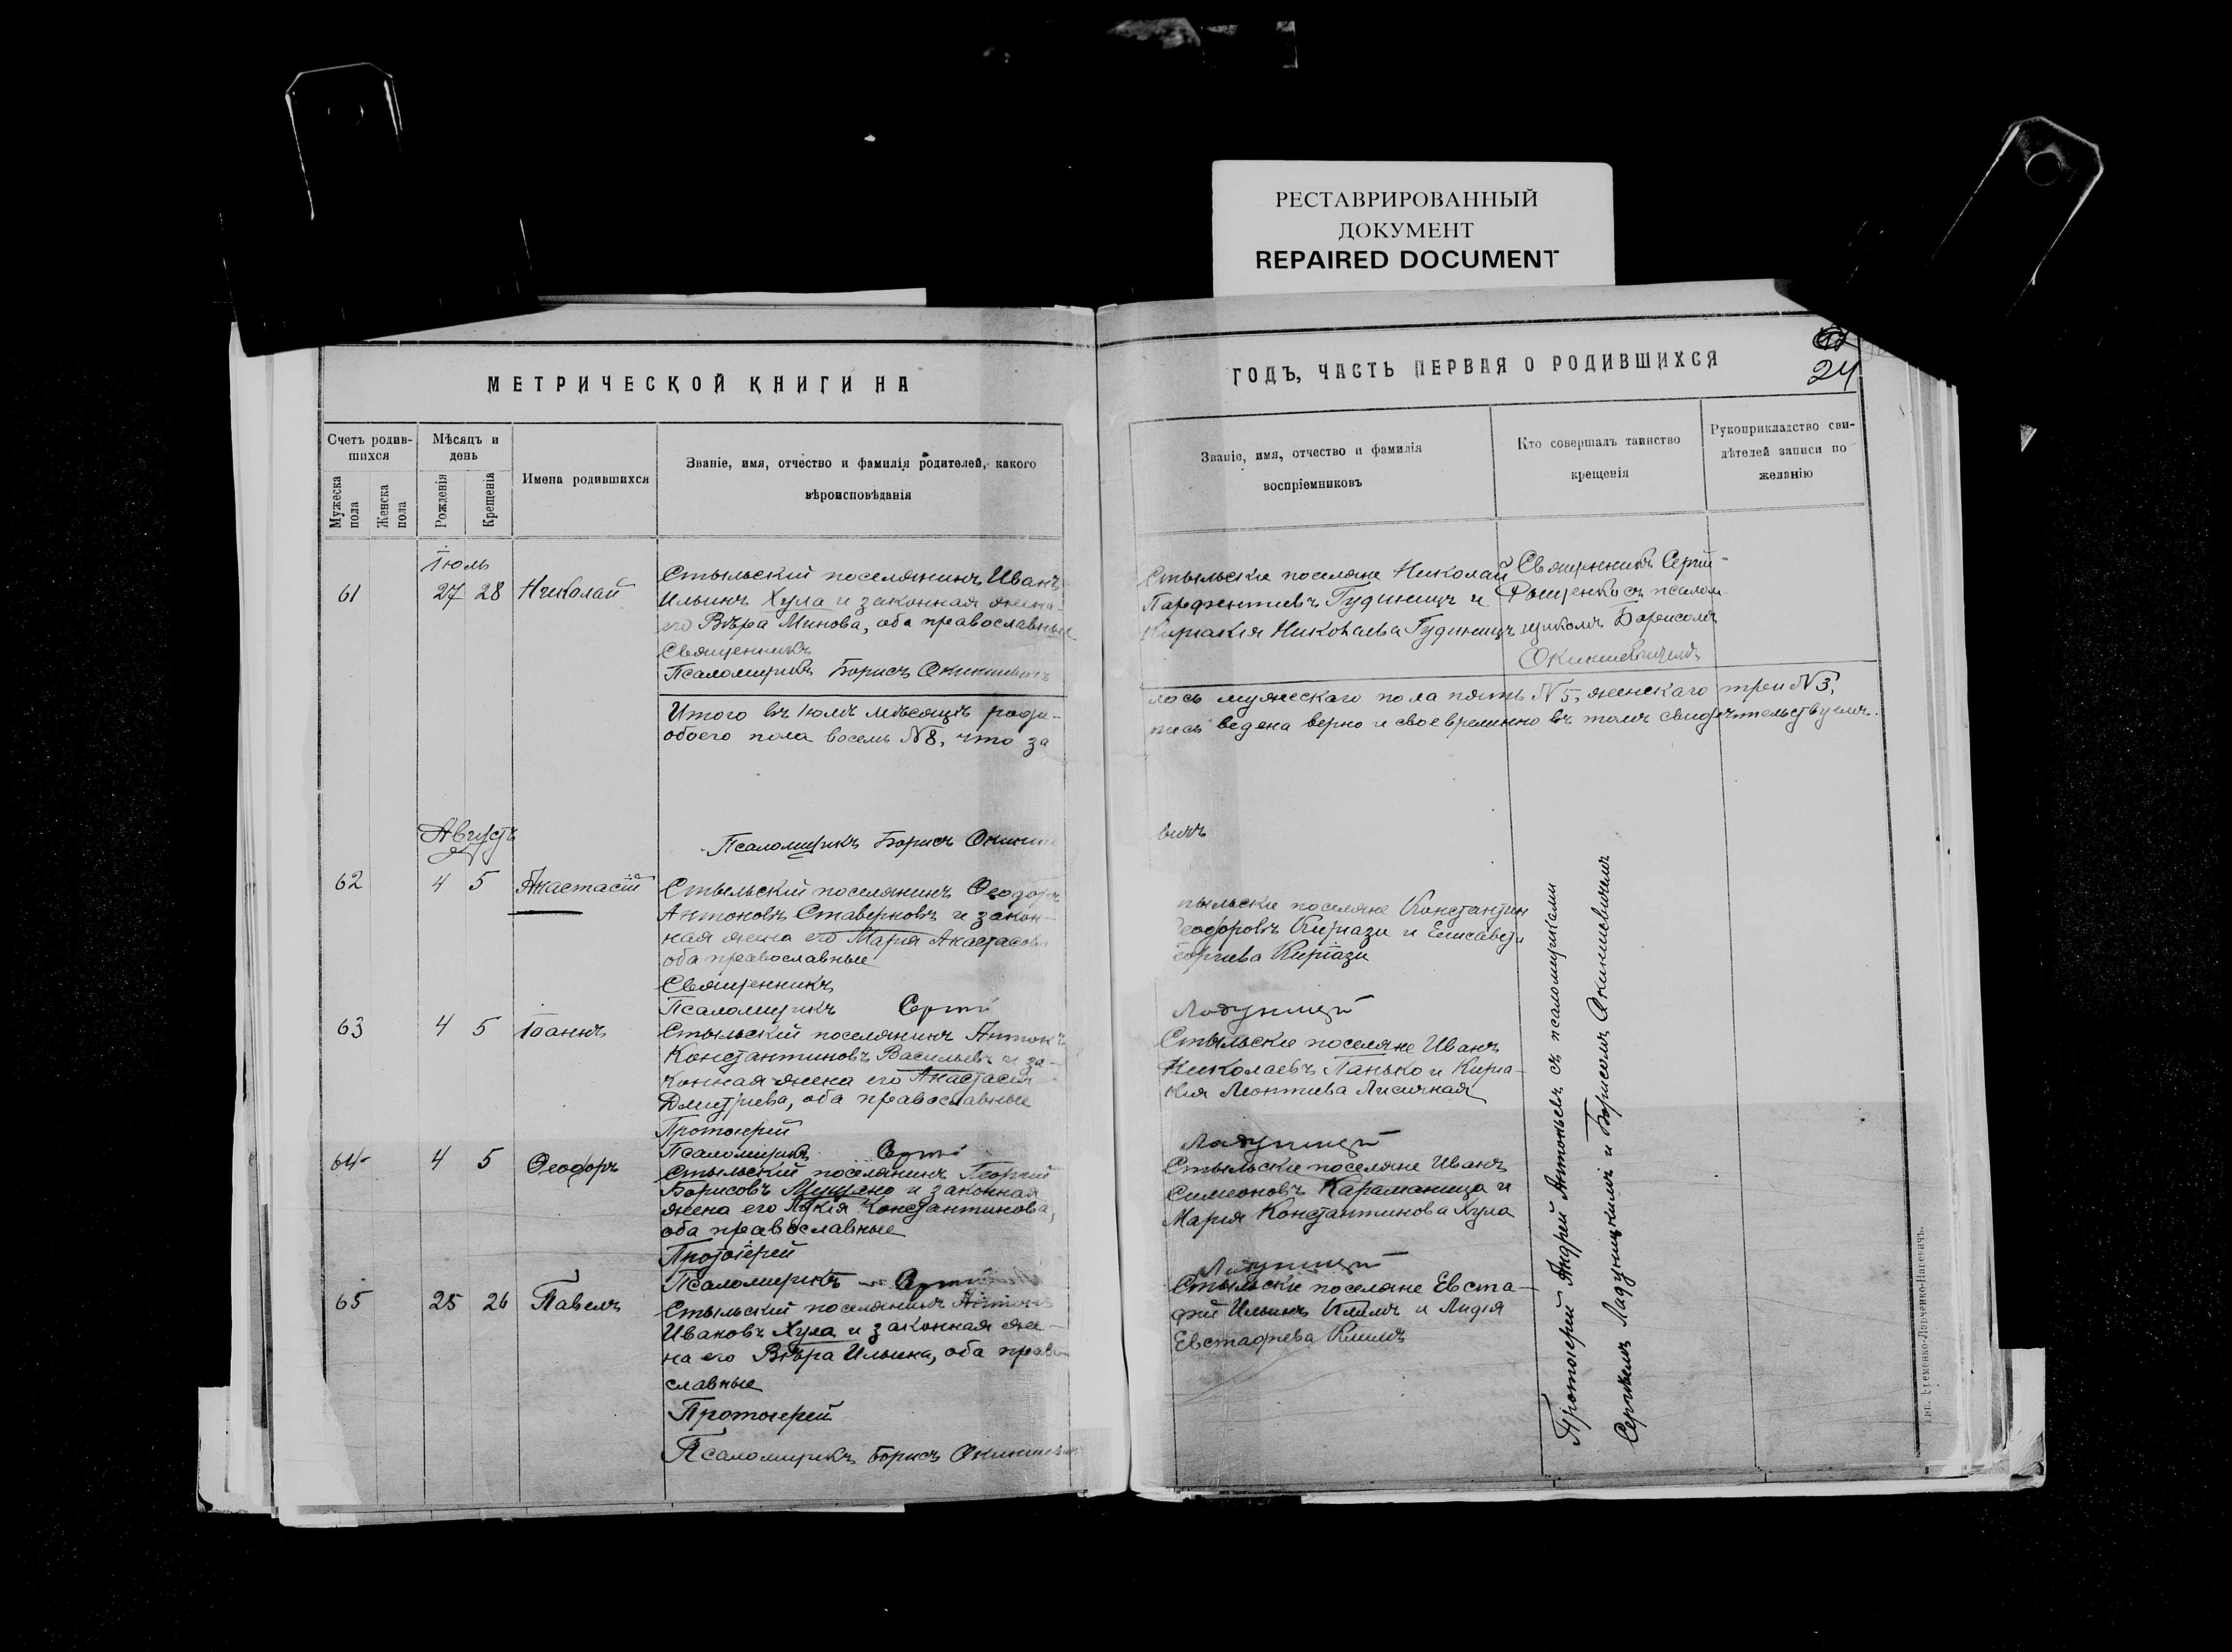 РЕСТАВРИРОВАННЫЙ
ДОКУМЕНТ
REPAIRED DOCUMENT
МЕТРИЧЕСКОЙ КНИГИ НА
ГОДЪ, ЧАСТЬ ПЕРВАЯ О РОДИВШИХСЯ
24
Счетъ родив-
шихся
Мужеска
пола
Женска
пола
Мѣсяцъ и
день
Рожденія
Крещенія
Имена родившихся
Званіе, имя, отчество и фамилія родителей, какого
вѣроисповѣданія
Званіе, имя, отчество и фамилія
воспріемниковъ
Кто совершалъ таинство
крещенія
Рукоприкладство сви-
дѣтелей записи по
желанію
Іюль
61 27 28 Николай
Стыльскій поселянинъ Иванъ
Ильинъ Хула и законная жена
его Вѣра Минова, оба православные
Священникъ
Псаломщикъ Борисъ Окиншевичъ
Стыльскіе поселяне Николай
Парфентіевъ Гудиницъ и
Киріакія Николаева Гудиницъ
Священникъ Сергій
съ псалом-
щикомъ Борисомъ
Окиншевичемъ
Итого въ Іюлѣ мѣсяцѣ роди-
лось мужескаго пола пять №5, женскаго три №3,
обоего пола восемь №8, что за
пись ведена верно и своевременно въ томъ свидѣтельствуемъ.
Августъ
Псаломщикъ Борисъ Окинше
вичъ
62 4 5 Анастасій
Стыльскій поселянинъ Ѳеодоръ
Антоновъ Ставерновъ и закон-
ная жена его Марія Анастасова
оба православные
Священникъ
Псаломщикъ Сергій
тыльскіе поселяне Константин
еодоровъ Киріази и Елисавета
еоргіева Киріази
Ладуницкій
63 4 5 Іоаннъ
Стыльскій поселянинъ Антонъ
Константиновъ Васильевъ и за-
конная жена его Анастасія
Дмитріева, оба православные
Протоіерей
Псаломщикъ Сергій
Стыльскіе поселяне Иванъ
Николаевъ Панько и Киріа-
кія Леонтіева Лисичная
Ладуницкій
64 4 5 Ѳеодоръ
Стыльскій поселянинъ Георгій
Борисовъ и законная
жена его Лукія Константинова,
оба православные
Протоіерей
Псаломщикъ Сергій
Стыльскіе поселяне Иванъ
Симеоновъ Караманица и
Марія Константинова Хула
Ладуницкій
65 25 26 Павелъ
Стыльскій поселянинъ Антонъ
Ивановъ Хула и законная же-
на его Вѣра Ильина, оба право
славные
Протоіерей
Псаломщикъ Борисъ Окиншевич
Стыльскіе поселяне Евста-
фій Ильинъ Климъ и Лидія
Евстафіева Климъ
Протоіерей Андрей Антоньевъ съ псаломщиками
Сергіемъ Ладуницкимъ и Борисомъ Окиншевичемъ